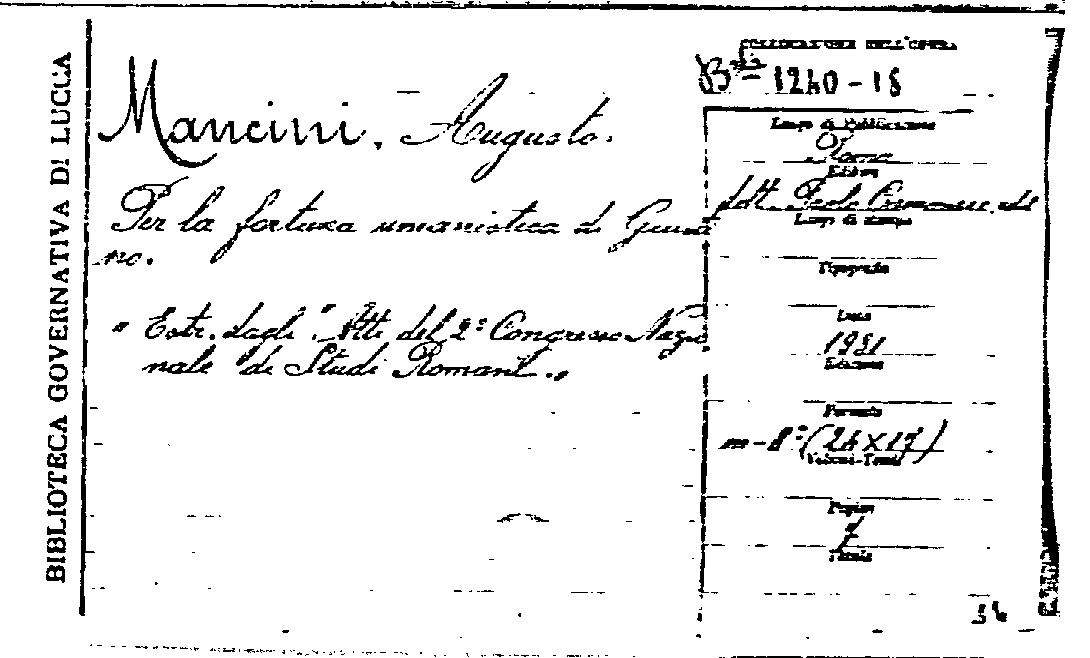 BIBLIOTECA GOVERNATIVA DI LUCCA
COLLOCAZIONE DELL'OPERA
1240-18
Mancini, Augusto.
Per la fortuna umanistica di
no.
"Estr. dagli "Atti del 2° Congresso Nazio
nale di Studi Romani".,
Luogo di Pubblicazione
Roma
Editore
dott. Paolo Cremonese, ed.
Luogo di stampa
Tipografia
Data
1931
Edizione
Formato
in-8° (24x17)
Volumi-Tomi
Pagine
7